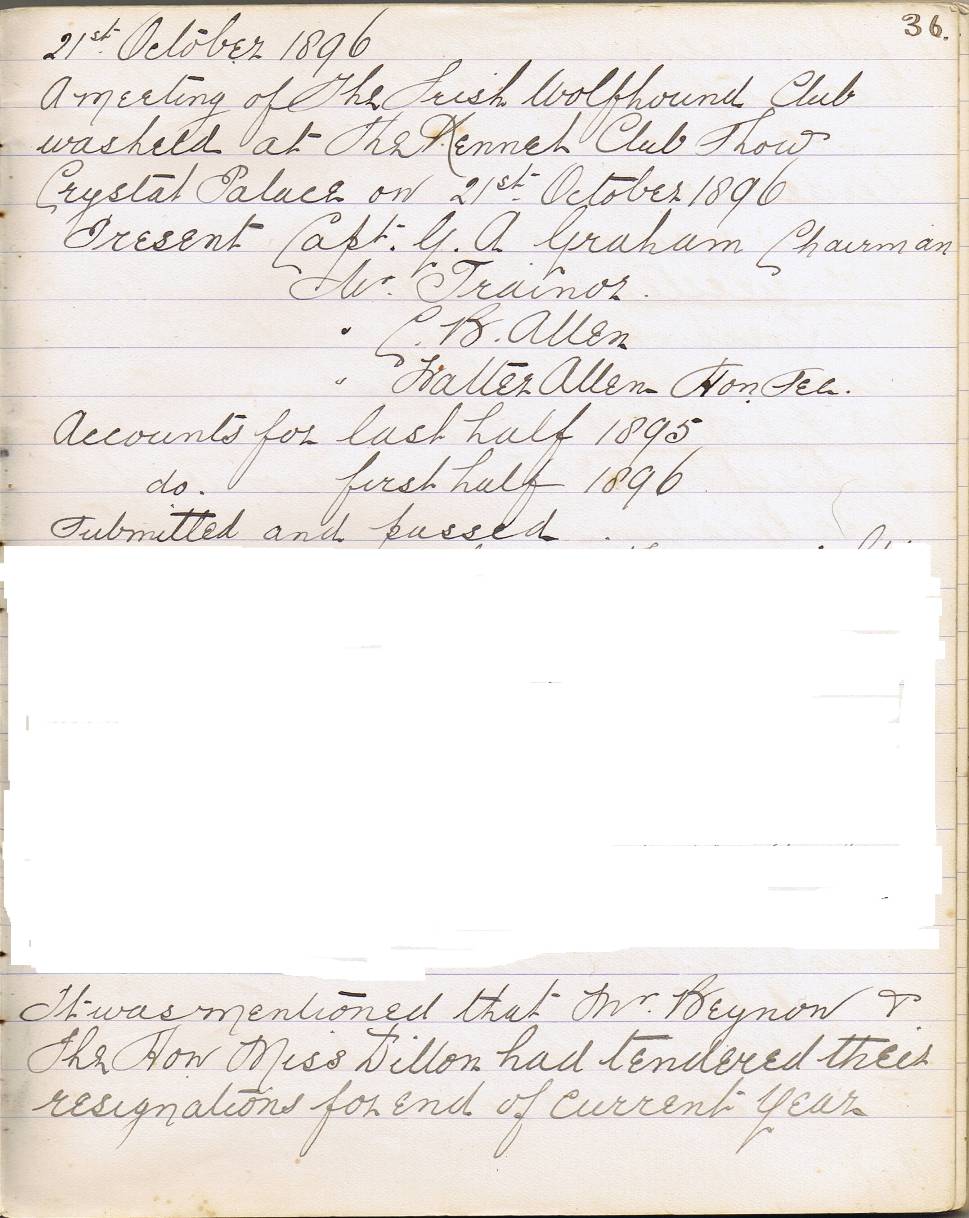 36.
21st October 1896
A meeting of The Irish Wolfhound Club
was held at The Kennel Club Show
Crystal Palace on 21st October 1896
Present Capt. G. A Graham Chairman
Mr. Trainor.
" C. B. Allen
" Walter Allen Hon Sec.
Accounts for last half 1895
do. first half 1896
Submitted and passed
It was mentioned that Mr. Beynon &
The Hon Miss Dillon had tendered their
resignations for end of current year